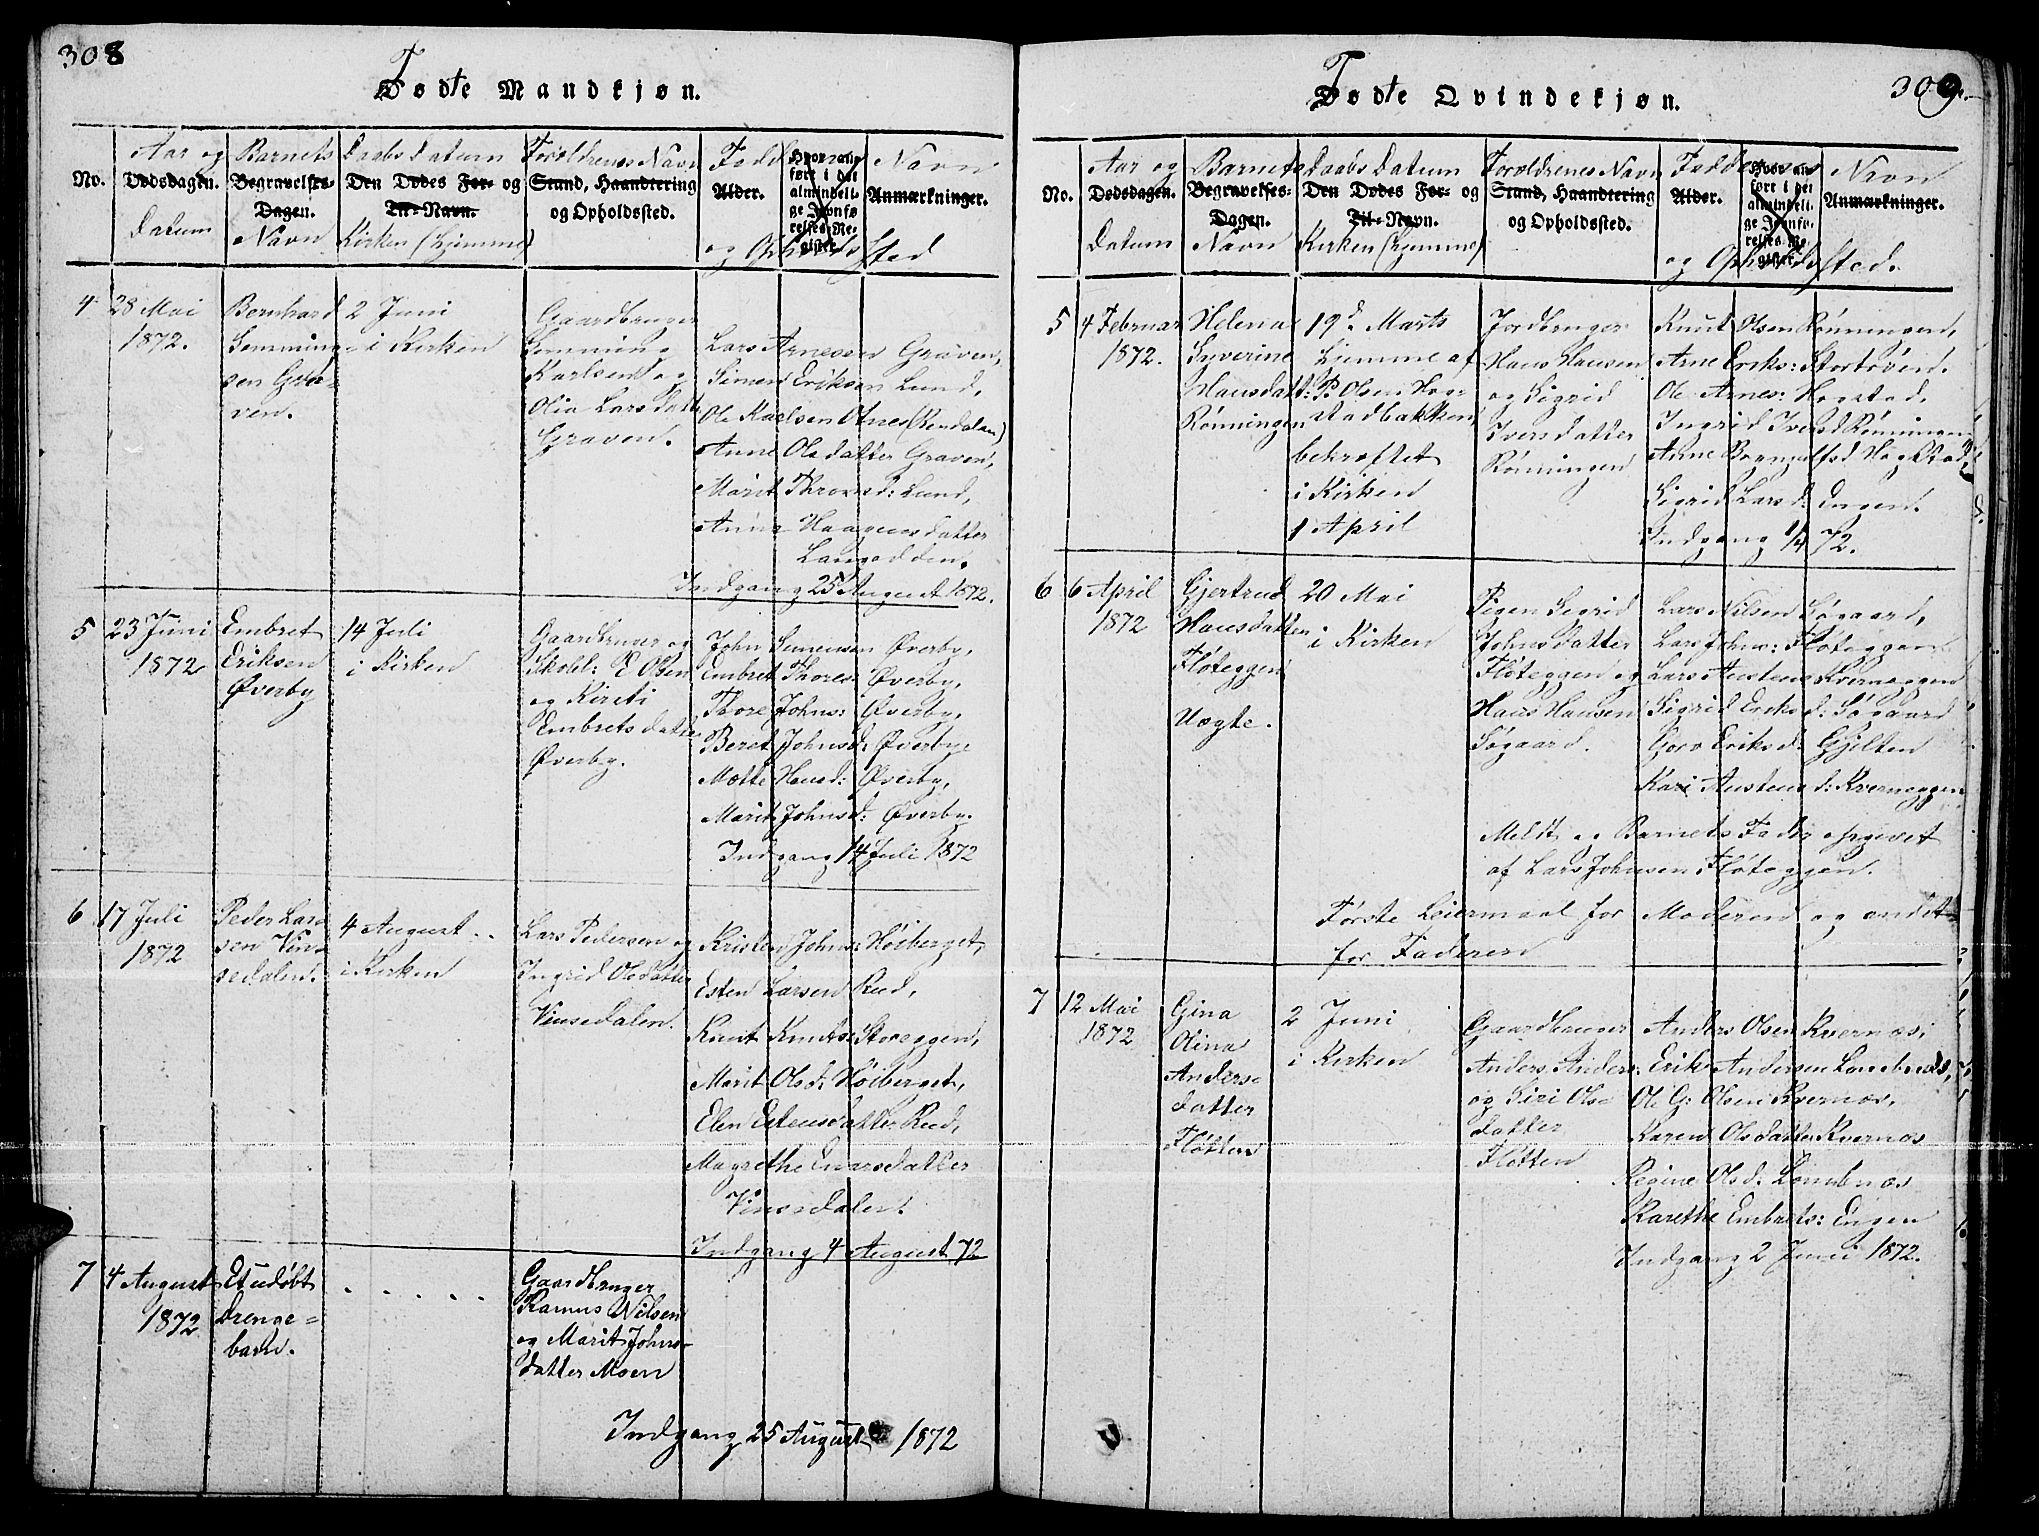 308
Fødte Mandkjøn.
No.
Aar og
Dødsdagen.
Datum
Barnets
Begravelses-
Dagen.
Navn
Daabs Datum
Den Dødes For- og
Til-Navn.
Kirken (hjemme)
Forældrenes Navn
Stand, Haandtering
og Opholdssted.
Fadd
Alder.
Hvor an-
ført i det
almindeli-
ge Jevnfø-
relses-Re-
gister.
Navn
Anmærkninger.
og Opholdssted
4
28 Mai
1872.
Bernhard
Semming-
sen Gra-
ven.
2 Juni
i Kirken
Gaardbruger
Semming
Karlsen og
Olia Larsdatt
Graven.
Lars Arnesen Graven,
Simen Eriksen Lund,
Ole Karlsen Otnes (Rendalen)
Anne Olsdatter Graven,
Marit Thronsd: Lund,
Anne Haagensdatter
Langodden.
Indgang 25 August 1872.
5
23 Juni
1872
Embret
Eriksen
Øverby
14 Juli
i Kirken
Gaardbruger og
Skoll: E Olsen
og Kirsti
Embretsdatter
Øverby.
John Simensen Øverby,
Embret Thores: Øverby,
Thore Johns: Øverby,
Beret Johnsd: Øverby,
Mette Hansd: Øverby,
Marit Johnsd: Øverby.
Indgang 14 Juli 1872
6
17 Juli
1872
Peder Lar-
sen Vin-
sedalen.
4 August
i Kirken
Lars Pedersen og
Ingrid Olsdatter
Vinsedalen.
Kristen Johns: Høiberget,
Esten Larsen Rud,
Knut Knuts: Storeggen,
Marit Olsd: Høiberget,
Elen Estensdatter Rud,
Magrethe Enarsdatter
Vinsedalen.
Indgang 4 August 72
7
4 August
1872
Et udøbt
Drenge-
barn.
. . . . .
Gaardbruger
Ramus Nilsen
og Marit Johns-
datter Moen
Indgang 25 August 1872
309.
Fødte Qvindekjøn.
No.
Aar og
Dødsdagen.
Datum
Barnets
Begravelses-
Dagen.
Navn
Daabs Datum
Den Dødes For- og
Til-Navn.
Kirken (hjemme)
Forældrenes Navn
Stand, Haandtering
og Opholdssted.
Faddernes
Alder.
Hvor an-
ført i det
almindeli-
ge Jevnfø-
relses-Re-
gister.
Navn
Anmærkninger.
og Opholdssted.
5
4 Februar
1872.
Helena
Syverine
Hansdatt:
Rønningen
19d. Marts
hjemme af
P. Olsen Hog-
stadbakken,
bekræftet
i Kirken
1 April
Jordbruger
Hans Hansen
og Sigrid
Iversdatter
Rønningen
Knut Olsen Rønningen,
Arne Eriks: Stortøven.
Ole Arnes: Hogstad,
Ingrid Iversd Rønningen
Anne Bryngelfsd Hogstad,
Sigrid Larsd: Engen.
Indgang 1/4 72.
6
6 April
1872
Gjertrud
Hansdatter
Fløteggen
Uægte.
20 Mai
i Kirken
Pigen Sigrid
Johnsdatter
Fløteggen og
Hans Hansen
Søgaard.
Lars Nilsen Søgaard,
Lars Johns: Fløteggen
Lars Austens Kverneggen
Sigrid Eriksd: Søgaard
Goro Eriksd: Gjelten
Kari Austensd: Kverneggen
Meldt og Barnets Fader opgivet
af Lars Johnsen Fløteggen.
Første Leiermaal for Moderen og andet
for Faderen
7
12 Mai
1872
Gina
Olina
Anders-
datter
Fløtten
2 Juni
i Kirken
Gaardbruger
Anders Anders:
og Siri Ols-
datter
Fløtten
Anders Olsen Kvernæs,
Erik Andersen Lombnæs,
Ole G: Olsen Kvernæs,
Karen Olsdatter Kvernæs
Regine Olsd: Lombnæs
Karethe Embrets: Engen
Indgang 2 Juni 1872.